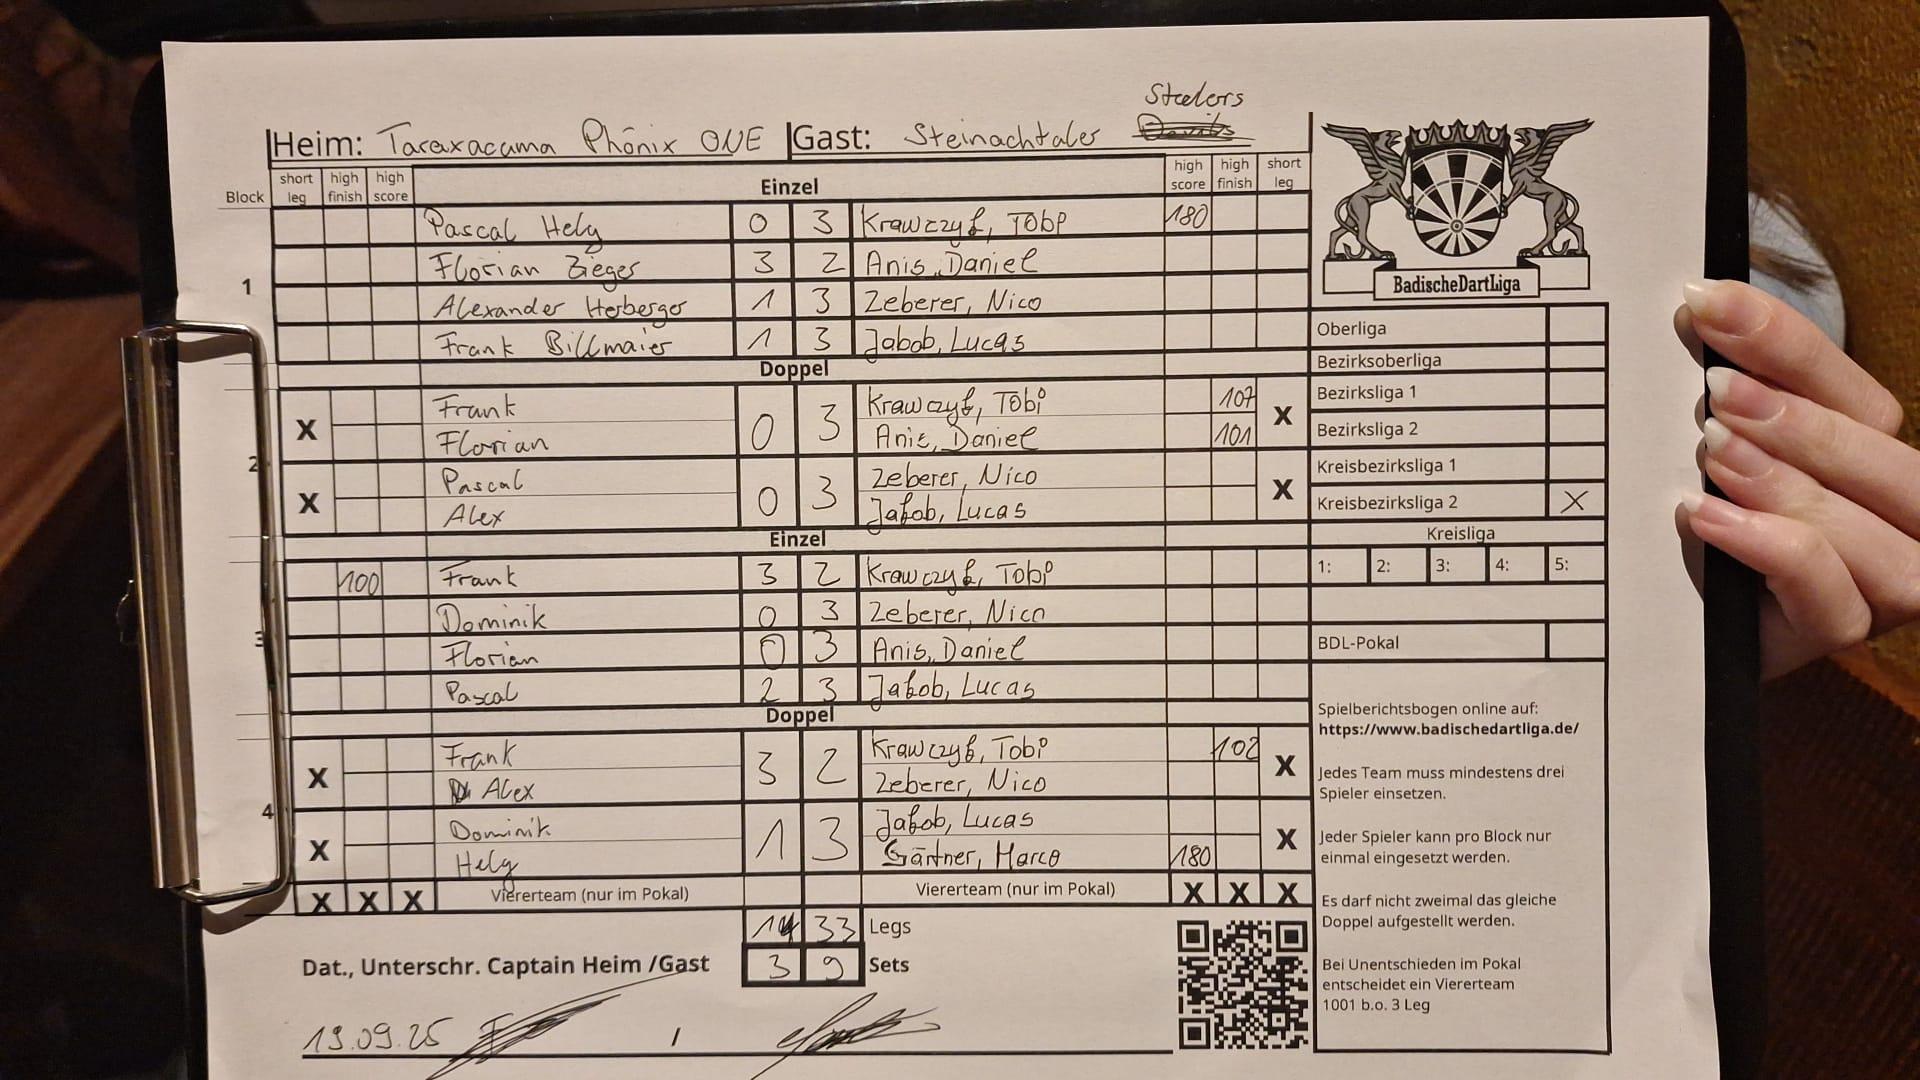 Steelers
Heim: Taraxacuma Phönix ONE Gast: Steinachtaler
Block short leg high finish high score Einzel high score high finish short leg
1
Pascal Hely 0 3 Krawczyk, Tobi 180
Florian Zieger 3 2 Anis, Daniel
Alexander Herberger 1 3 Zeberer, Nico
Frank Billmaier 1 3 Jakob, Lucas
Doppel
2
X Frank 0 3 Krawczyk, Tobi 107 X
Florian Anis, Daniel 101
X Pascal 0 3 Zeberer, Nico X
Alex Jakob, Lucas
Einzel
3
100 Frank 3 2 Krawczyk, Tobi
Dominik 0 3 Zeberer, Nico
Florian 0 3 Anis, Daniel
Pascal 2 3 Jakob, Lucas
Doppel
4
X Frank 3 2 Krawczyk, Tobi 102 X
Alex Zeberer, Nico
X Dominik 1 3 Jakob, Lucas X
Hely Gärtner, Marco 180
X X X Viererteam (nur im Pokal) Viererteam (nur im Pokal) X X X
14 33 Legs
Dat., Unterschr. Captain Heim /Gast 3 9 Sets
19.09.25 /
BadischeDartLiga
Oberliga
Bezirksoberliga
Bezirksliga 1
Bezirksliga 2
Kreisbezirksliga 1
Kreisbezirksliga 2 X
Kreisliga
1: 2: 3: 4: 5:
BDL-Pokal
Spielberichtsbogen online auf:
https://www.badischedartliga.de/
Jedes Team muss mindestens drei
Spieler einsetzen.
Jeder Spieler kann pro Block nur
einmal eingesetzt werden.
Es darf nicht zweimal das gleiche
Doppel aufgestellt werden.
Bei Unentschieden im Pokal
entscheidet ein Viererteam
1001 b.o. 3 Leg